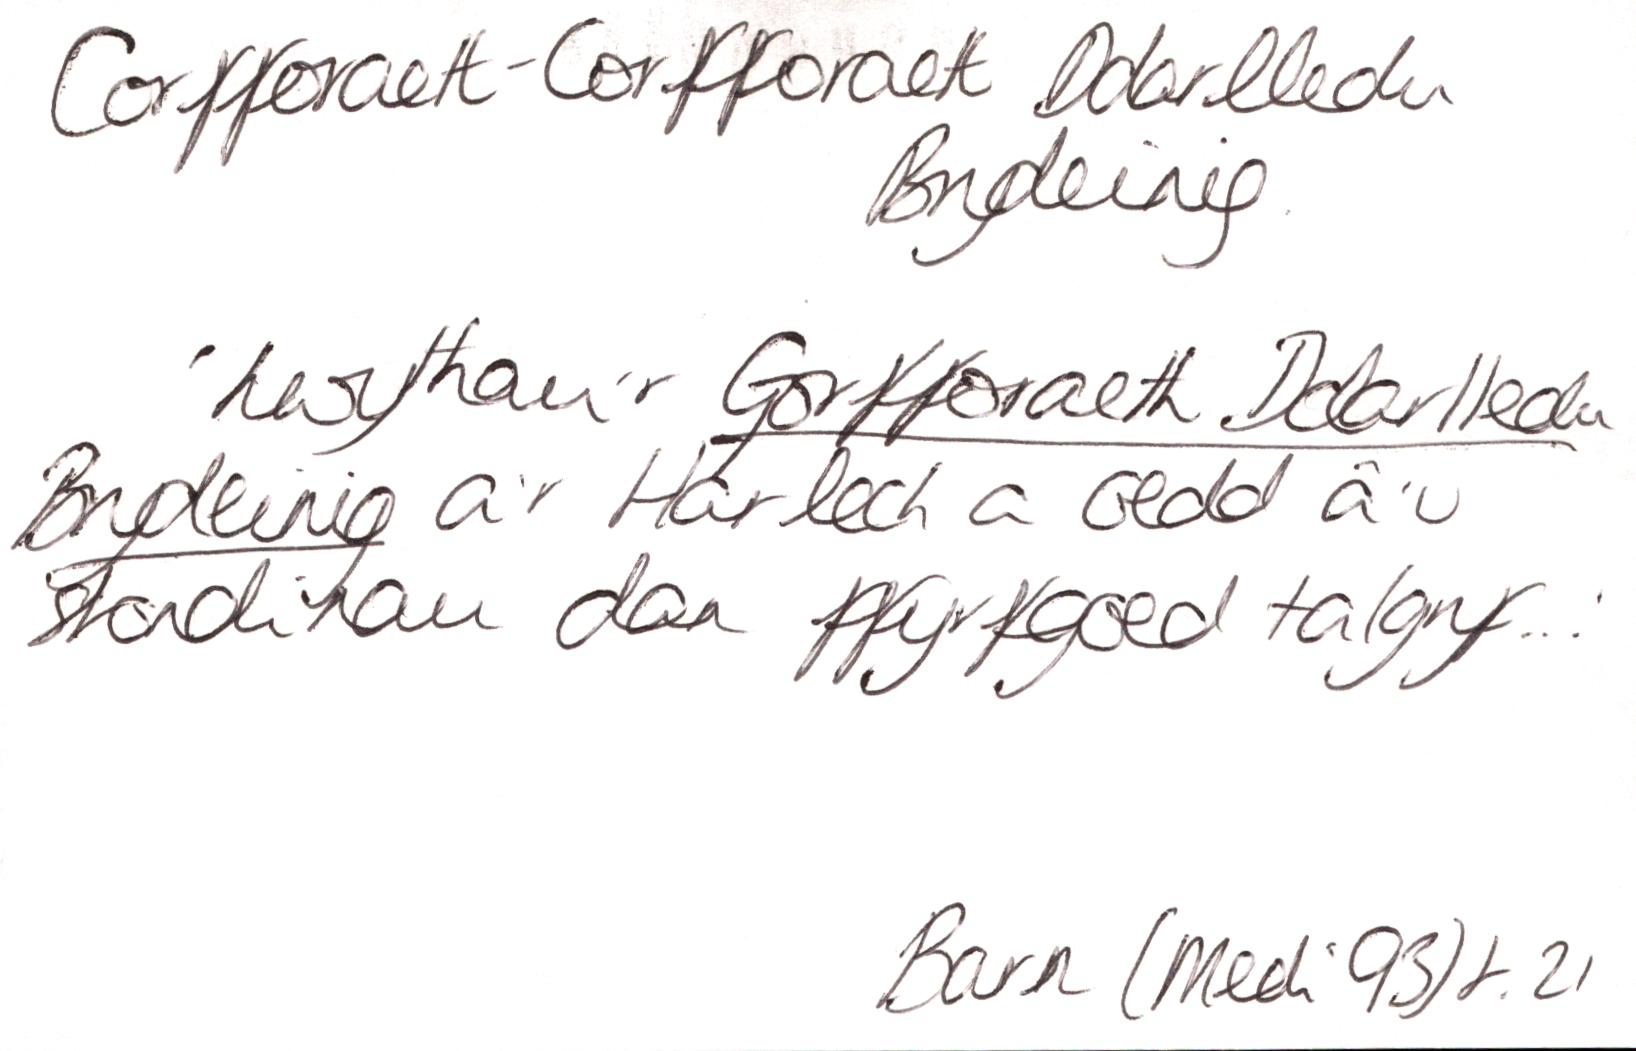 Corfforaeth - Corfforaeth Ddarlledu
Brydeinig.
'hwythau'r Gorfforaeth Ddarlledu
Brydeinig a'r Harlech a oedd â'u
stondinau dan ffyrfgoed talgryf...'
Barn (Medi 93) t. 21